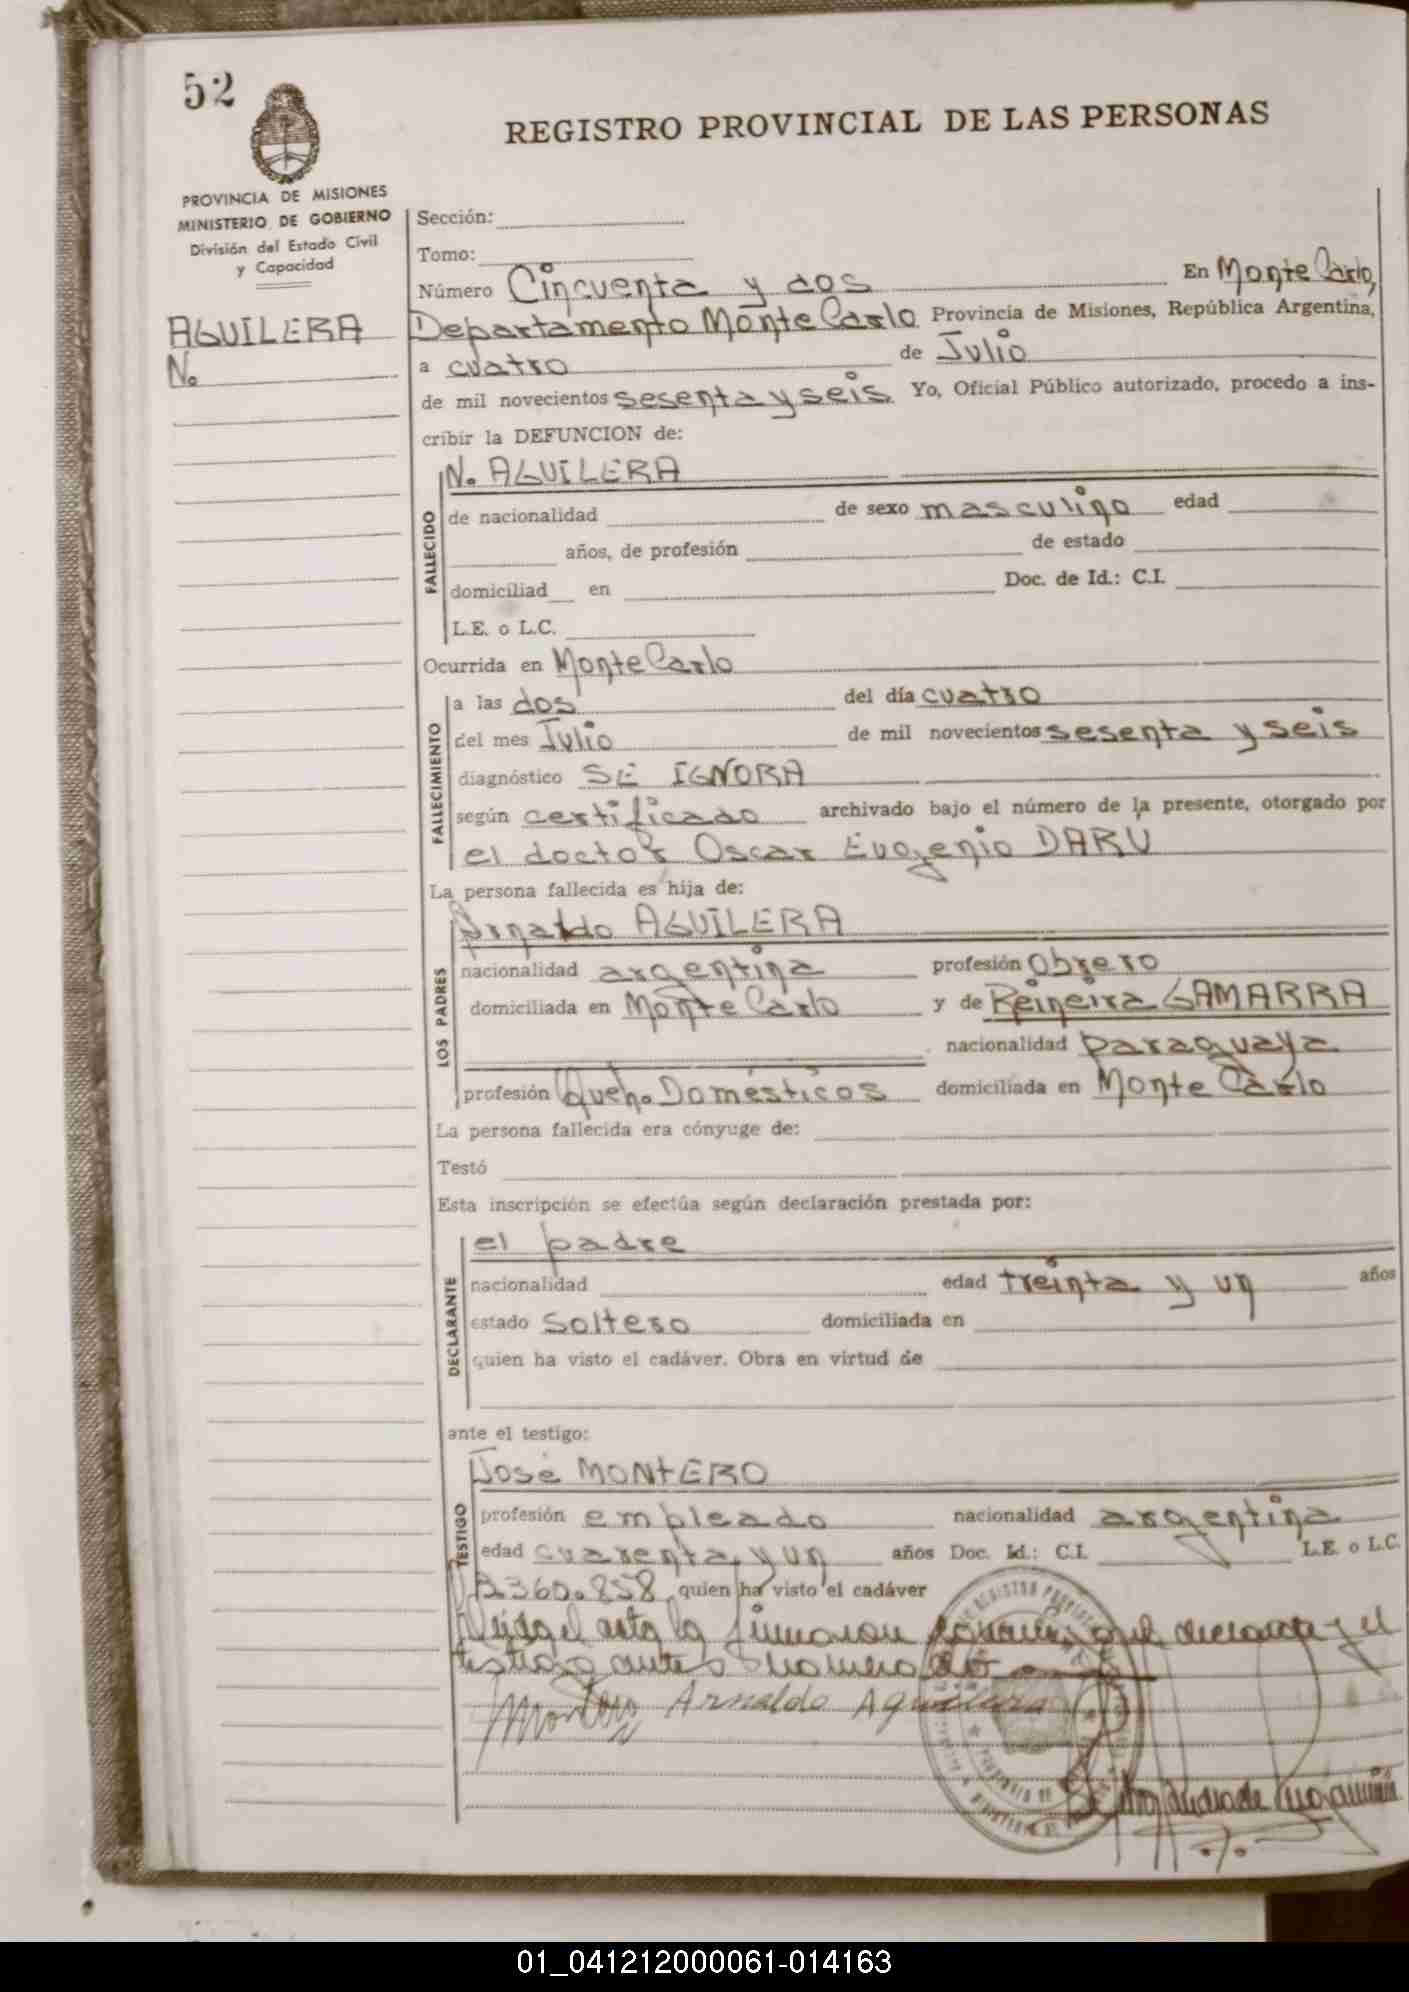 52
REGISTRO PROVINCIAL DE LAS PERSONAS
PROVINCIA DE MISIONES
MINISTERIO DE GOBIERNO
División del Estado Civil
y Capacidad
AGUILERA
N.
Sección:
Tomo:
Número Cincuenta y dos En Monte Carlo,
Departamento Monte Carlo Provincia de Misiones, República Argentina,
a cuatro de Julio
de mil novecientos sesenta y seis Yo, Oficial Público autorizado, procedo a ins-
cribir la DEFUNCION de:
FALLECIDO
N. AGUILERA
de nacionalidad de sexo masculino edad
años, de profesión de estado
domiciliad en Doc. de Id.: C.I.
L.E. o L.C.
Ocurrida en Monte Carlo
FALLECIMIENTO
a las dos del día cuatro
del mes Julio de mil novecientos sesenta y seis
diagnóstico SE IGNORA
según certificado archivado bajo el número de la presente, otorgado por
el doctor Oscar Eugenio DARU
La persona fallecida es hija de:
LOS PADRES
Arnaldo AGUILERA
nacionalidad argentina profesión Obrero
domiciliada en Monte Carlo y de Reineira GAMARRA
nacionalidad paraguaya
profesión Queh. Domésticos domiciliada en Monte Carlo
La persona fallecida era cónyuge de:
Testó
Esta inscripción se efectúa según declaración prestada por:
DECLARANTE
el padre
nacionalidad edad treinta y un años
estado Soltero domiciliada en
quien ha visto el cadáver. Obra en virtud de
ante el testigo:
TESTIGO
José MONTERO
profesión empleado nacionalidad argentina
edad cuarenta y un años Doc. Id.: C.I. L.E. o L.C.
360.858 quien ha visto el cadáver
Leída el acta la firmaron el declarante y el
testigo
Arnaldo Aguilera
01_041212000061-014163